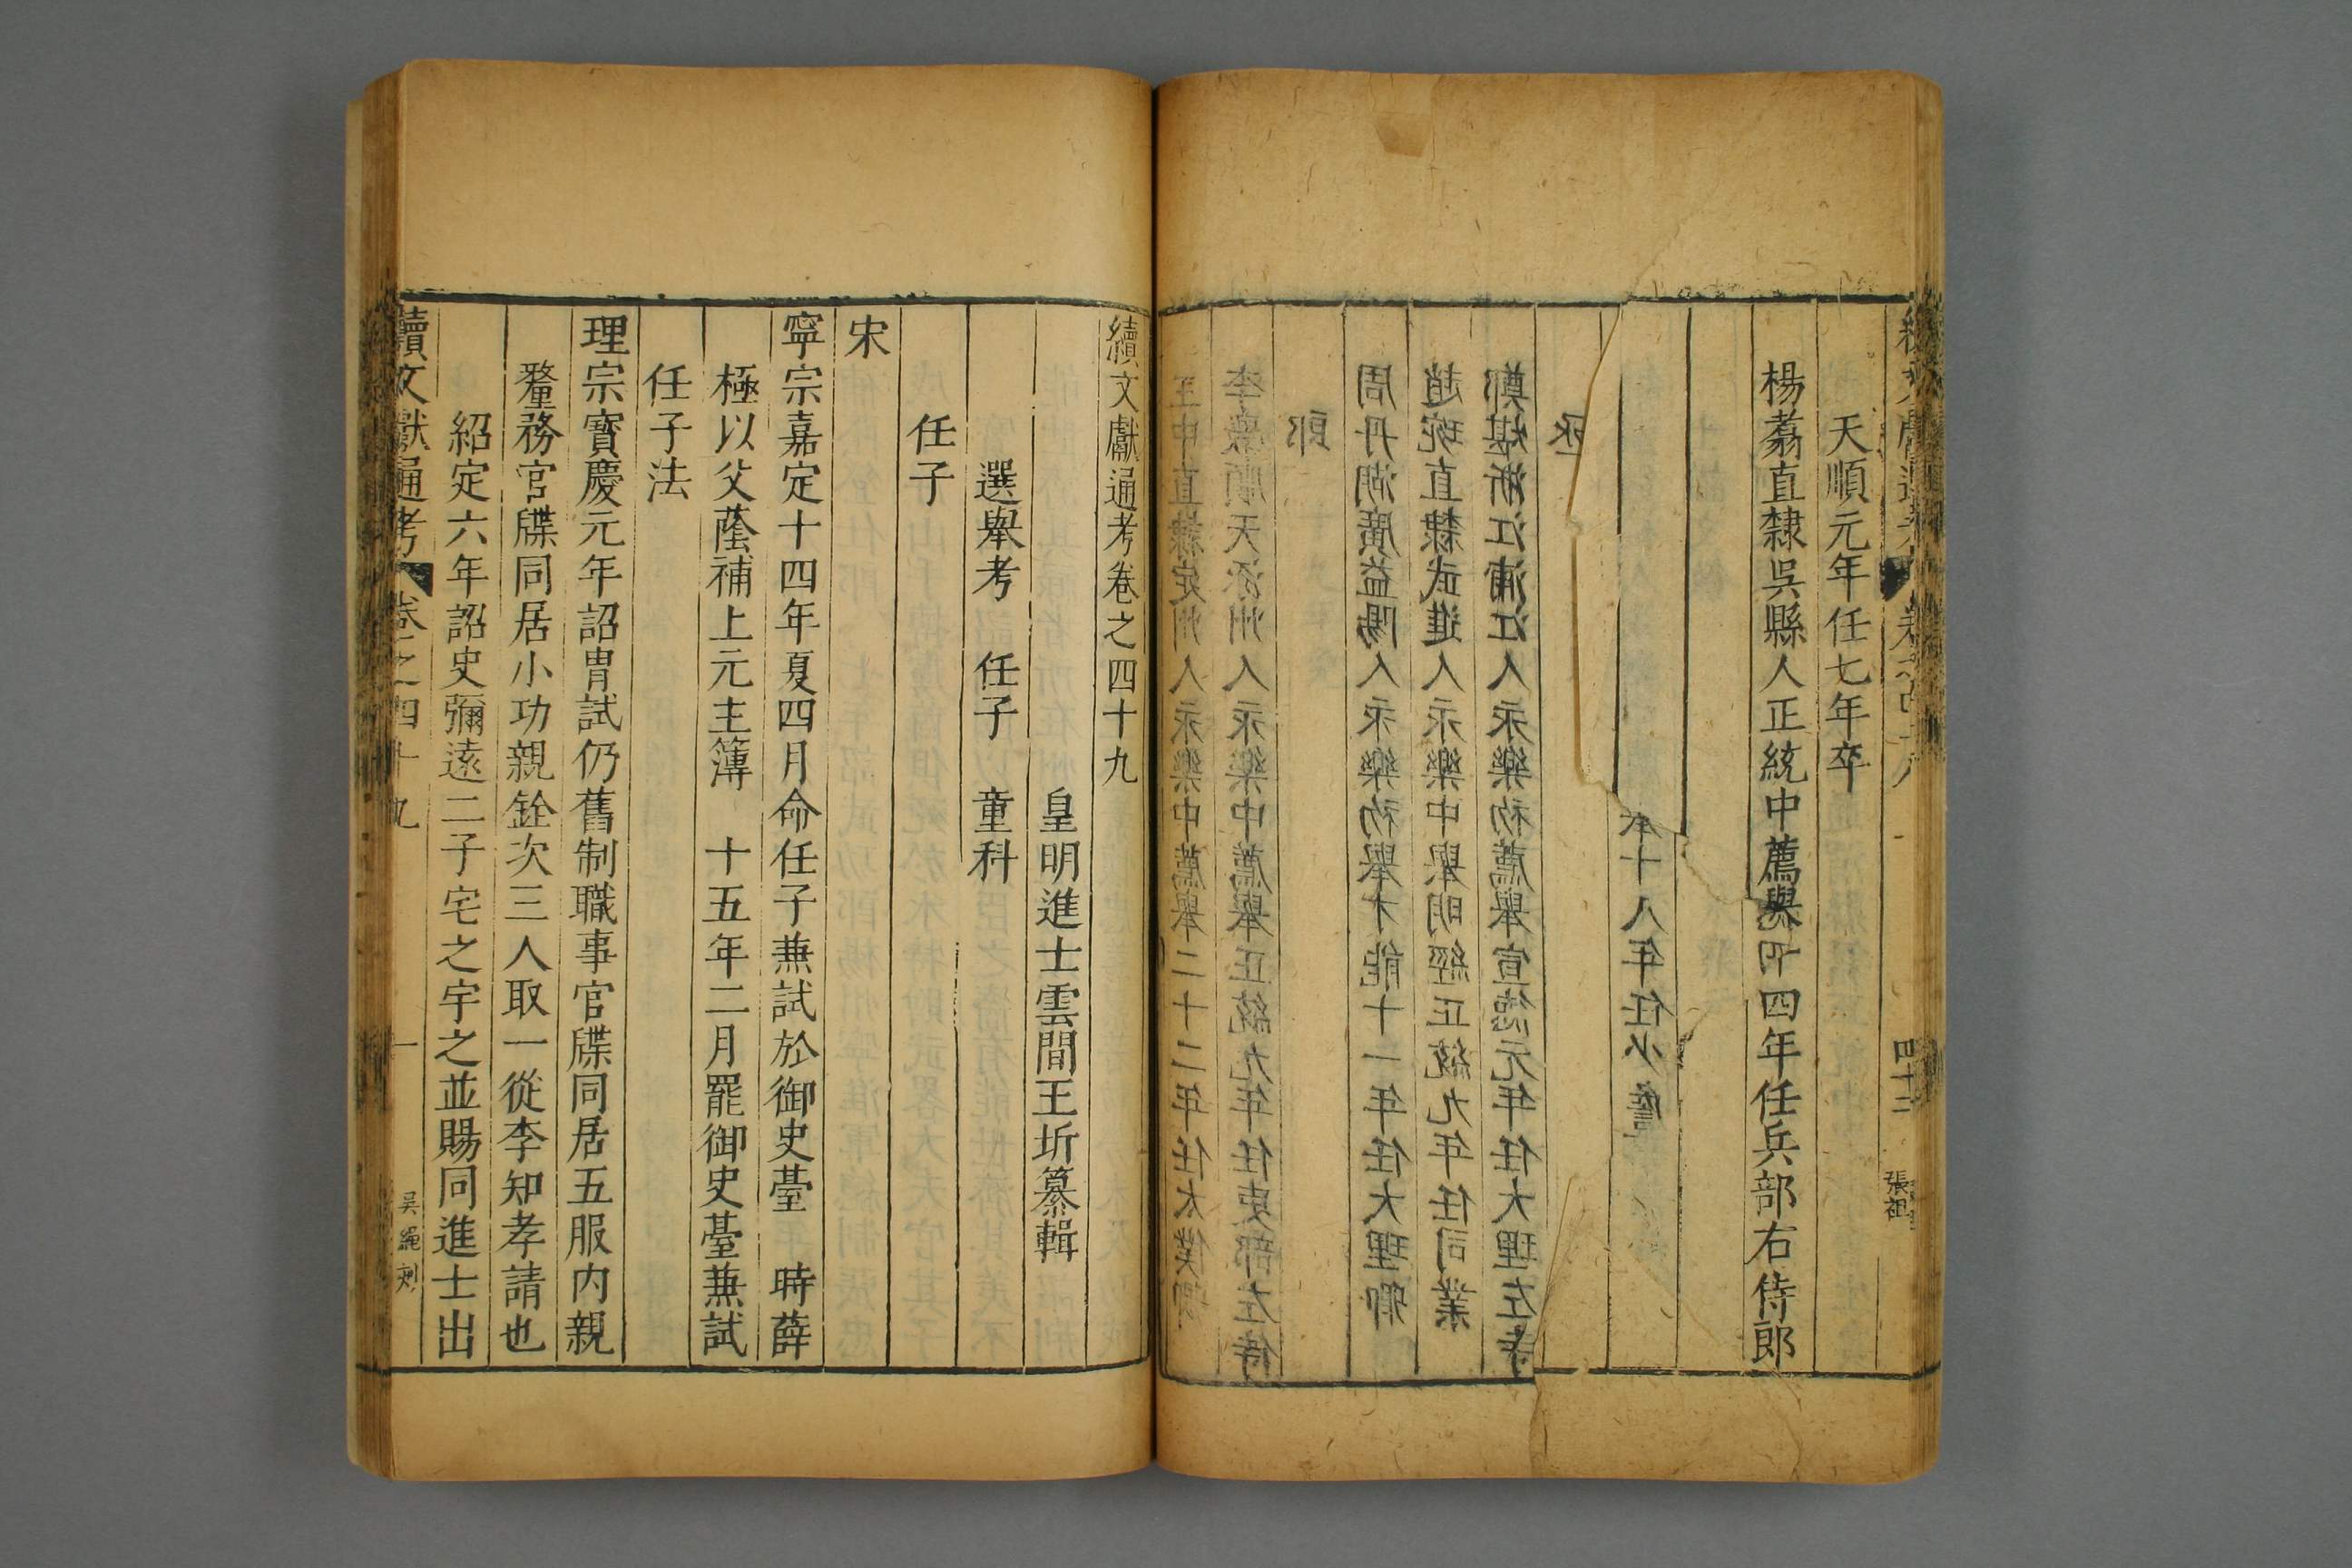 天順元年任七年卒
楊翥直隸吳縣人正統中薦舉
四年任兵部右侍郎
本十八年任少詹
丞
鄭堪浙江浦江人永樂初薦舉宣德元年任大理左寺
趙琬直隸武進人永樂中舉明經正統九年任司業
周丹湖廣益陽人永樂初舉才能十一年任大理卿
郎
李敏順天涿州人永樂中薦舉正統九年任吏部左侍
王中直隸定州人永樂中薦舉二十二年任太僕卿
四十二
張祖
續文獻通考卷之四十九
皇明進士雲間王圻纂輯
選舉考 任子 童科
任子
宋
寧宗嘉定十四年夏四月命任子兼試於御史臺 時薛
極以父蔭補上元主簿 十五年二月罷御史臺兼試
任子法
理宗寶慶元年詔冑試仍舊制職事官牒同居五服内親
釐務官牒同居小功親銓次三人取一從李知孝請也
紹定六年詔史彌遠二子宅之宇之並賜同進士出
續文獻通考 卷之四十九 一 吳繩刻